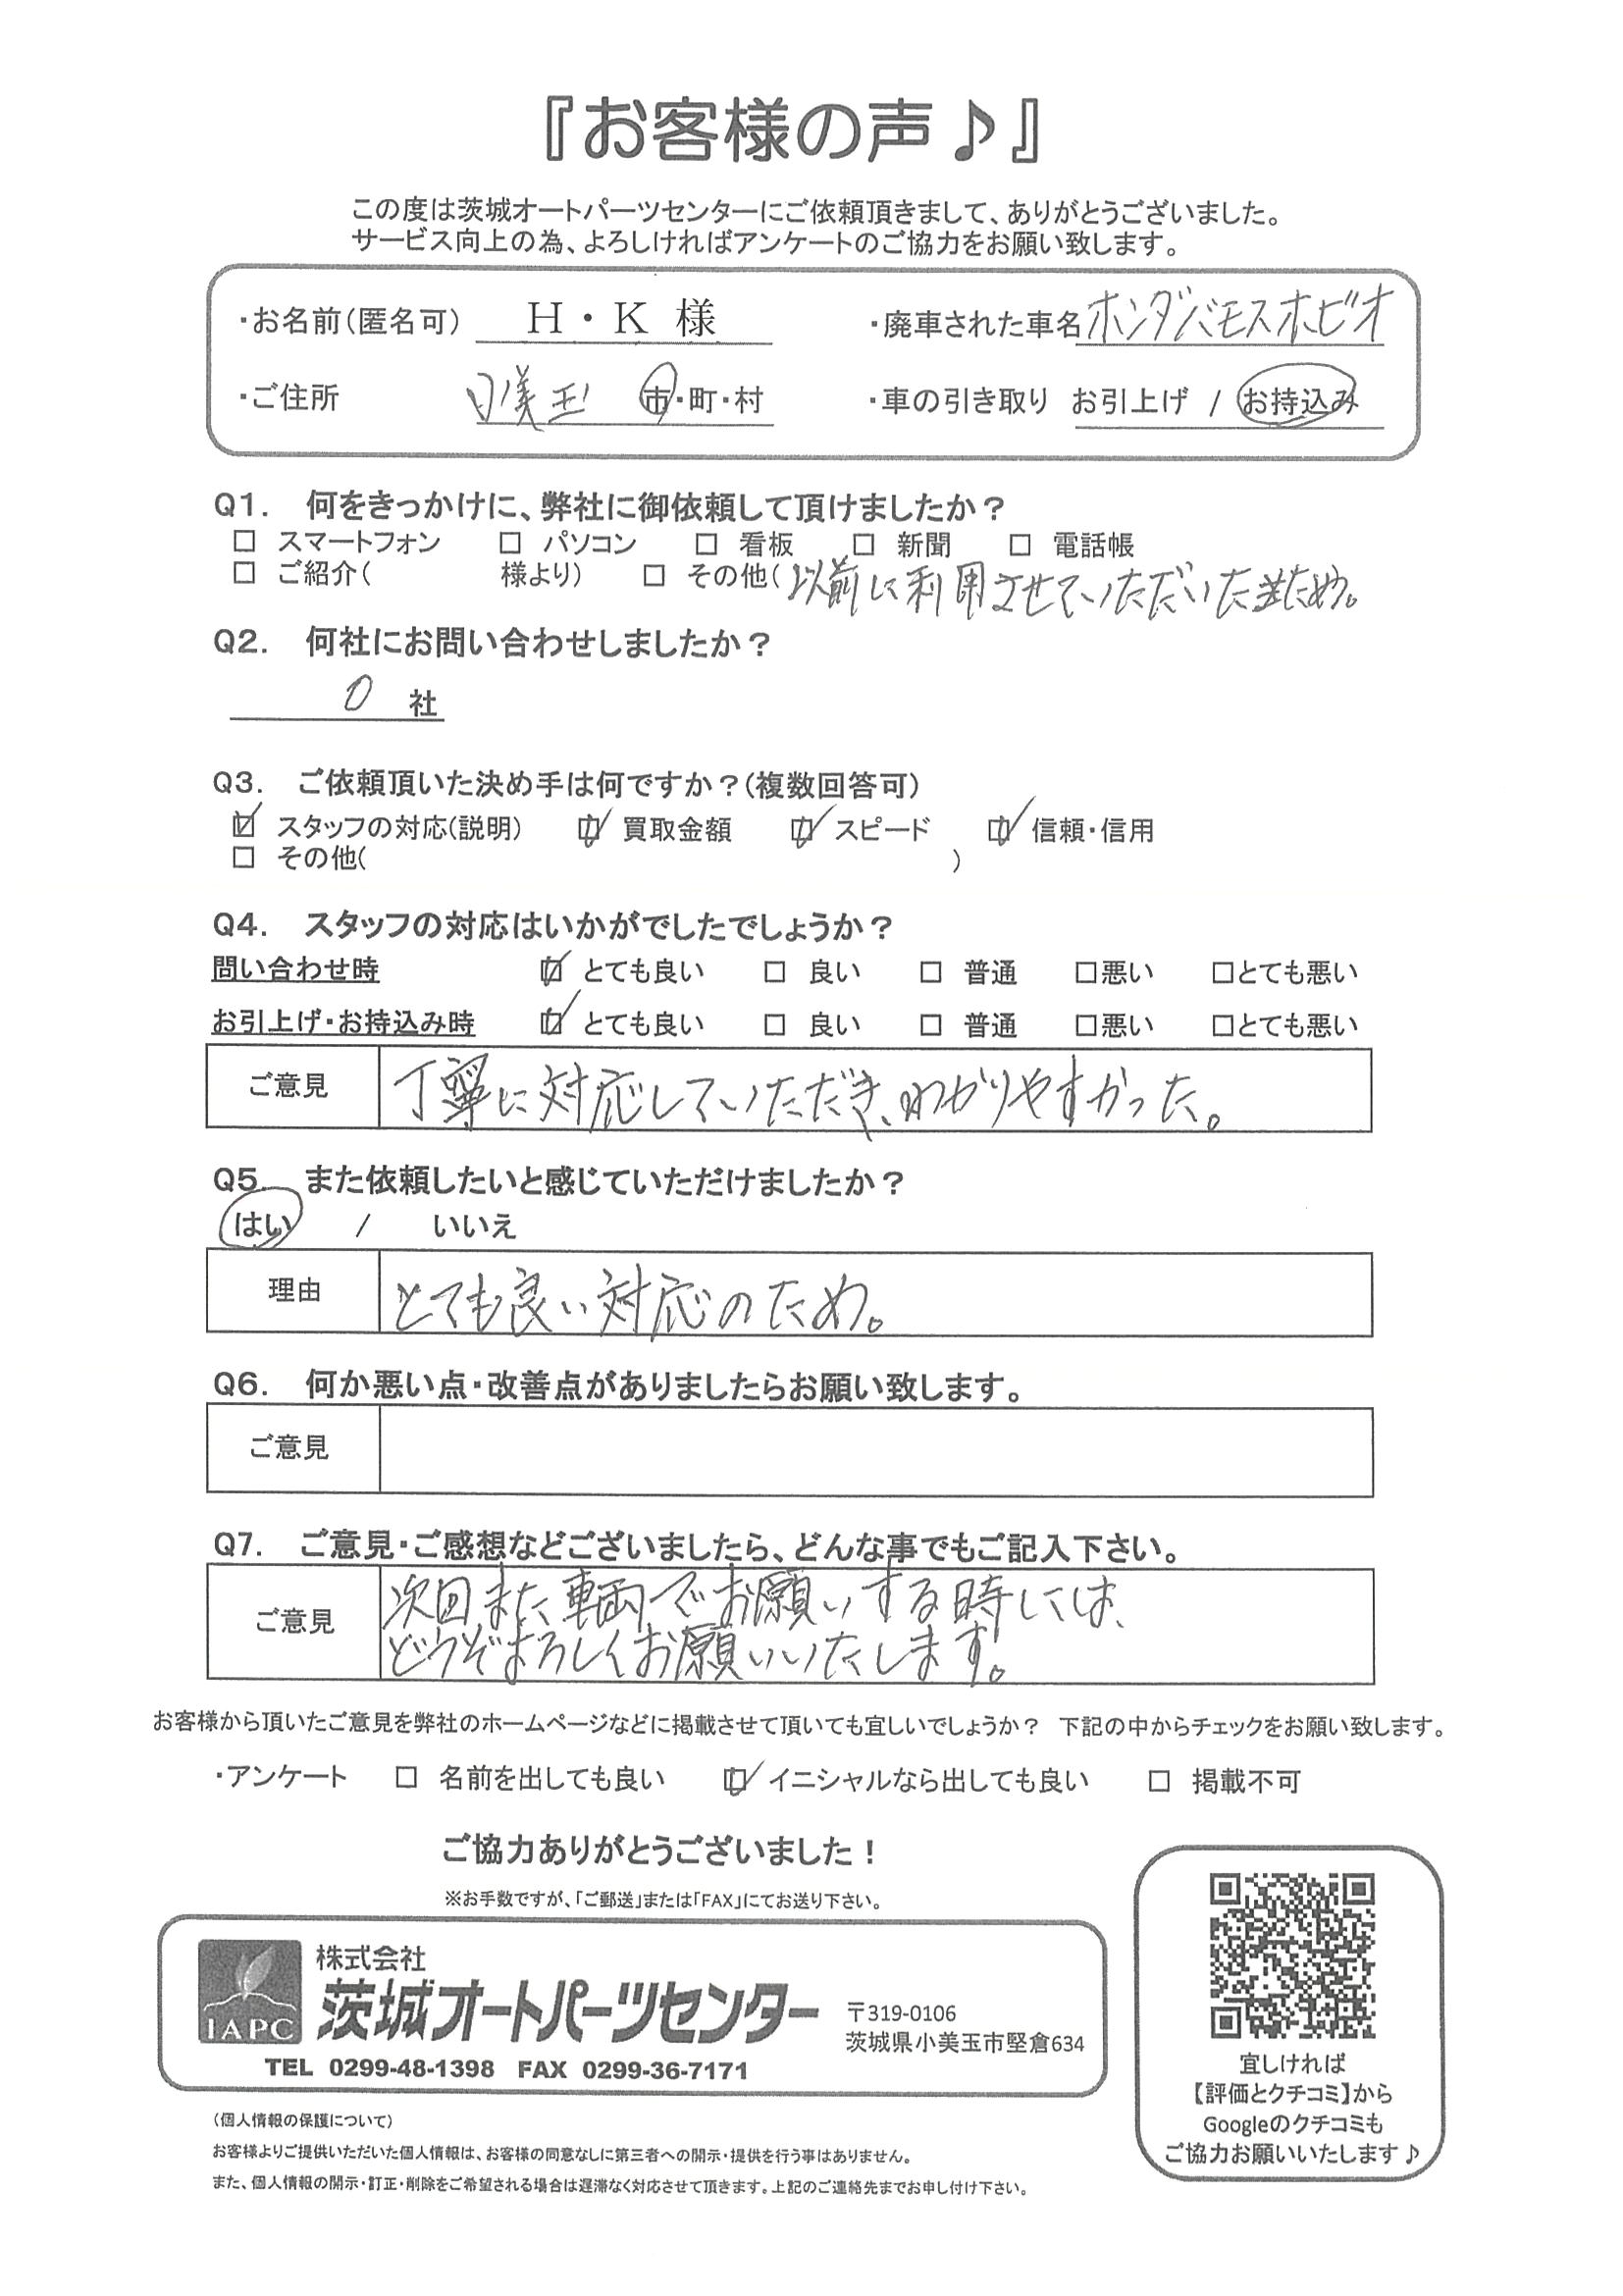 『お客様の声♪』
この度は茨城オートパーツセンターにご依頼頂きまして、ありがとうございました。
サービス向上の為、よろしければアンケートのご協力をお願い致します。
・お名前(匿名可) H・K 様 ・廃車された車名 ホンダバモスホビオ
・ご住所 小美玉 市・町・村 ・車の引き取り お引上げ / お持込み
Q1. 何をきっかけに、弊社に御依頼して頂けましたか？
□ スマートフォン □ パソコン □ 看板 □ 新聞 □ 電話帳
□ ご紹介( 様より) □ その他(以前に利用させていただいたため。
Q2. 何社にお問い合わせしましたか？
0 社
Q3. ご依頼頂いた決め手は何ですか？(複数回答可)
☑ スタッフの対応(説明) ☑ 買取金額 ☑ スピード ☑ 信頼・信用
□ その他( )
Q4. スタッフの対応はいかがでしたでしょうか？
問い合わせ時 ☑ とても良い □ 良い □ 普通 □悪い □とても悪い
お引上げ・お持込み時 ☑ とても良い □ 良い □ 普通 □悪い □とても悪い
ご意見 丁寧に対応していただき、わかりやすかった。
Q5. また依頼したいと感じていただけましたか？
はい / いいえ
理由 とても良い対応のため。
Q6. 何か悪い点・改善点がありましたらお願い致します。
ご意見
Q7. ご意見・ご感想などございましたら、どんな事でもご記入下さい。
ご意見 次回また車両でお願いする時には、
どうぞよろしくお願いいたします。
お客様から頂いたご意見を弊社のホームページなどに掲載させて頂いても宜しいでしょうか？ 下記の中からチェックをお願い致します。
・アンケート □ 名前を出しても良い ☑ イニシャルなら出しても良い □ 掲載不可
ご協力ありがとうございました！
※お手数ですが、「ご郵送」または「FAX」にてお送り下さい。
IAPC
株式会社
茨城オートパーツセンター
〒319-0106
茨城県小美玉市堅倉634
TEL 0299-48-1398 FAX 0299-36-7171
宜しければ
【評価とクチコミ】から
Googleのクチコミも
ご協力お願いいたします♪
(個人情報の保護について)
お客様よりご提供いただいた個人情報は、お客様の同意なしに第三者への開示・提供を行う事はありません。
また、個人情報の開示・訂正・削除をご希望される場合は遅滞なく対応させて頂きます。上記のご連絡先までお申し付け下さい。